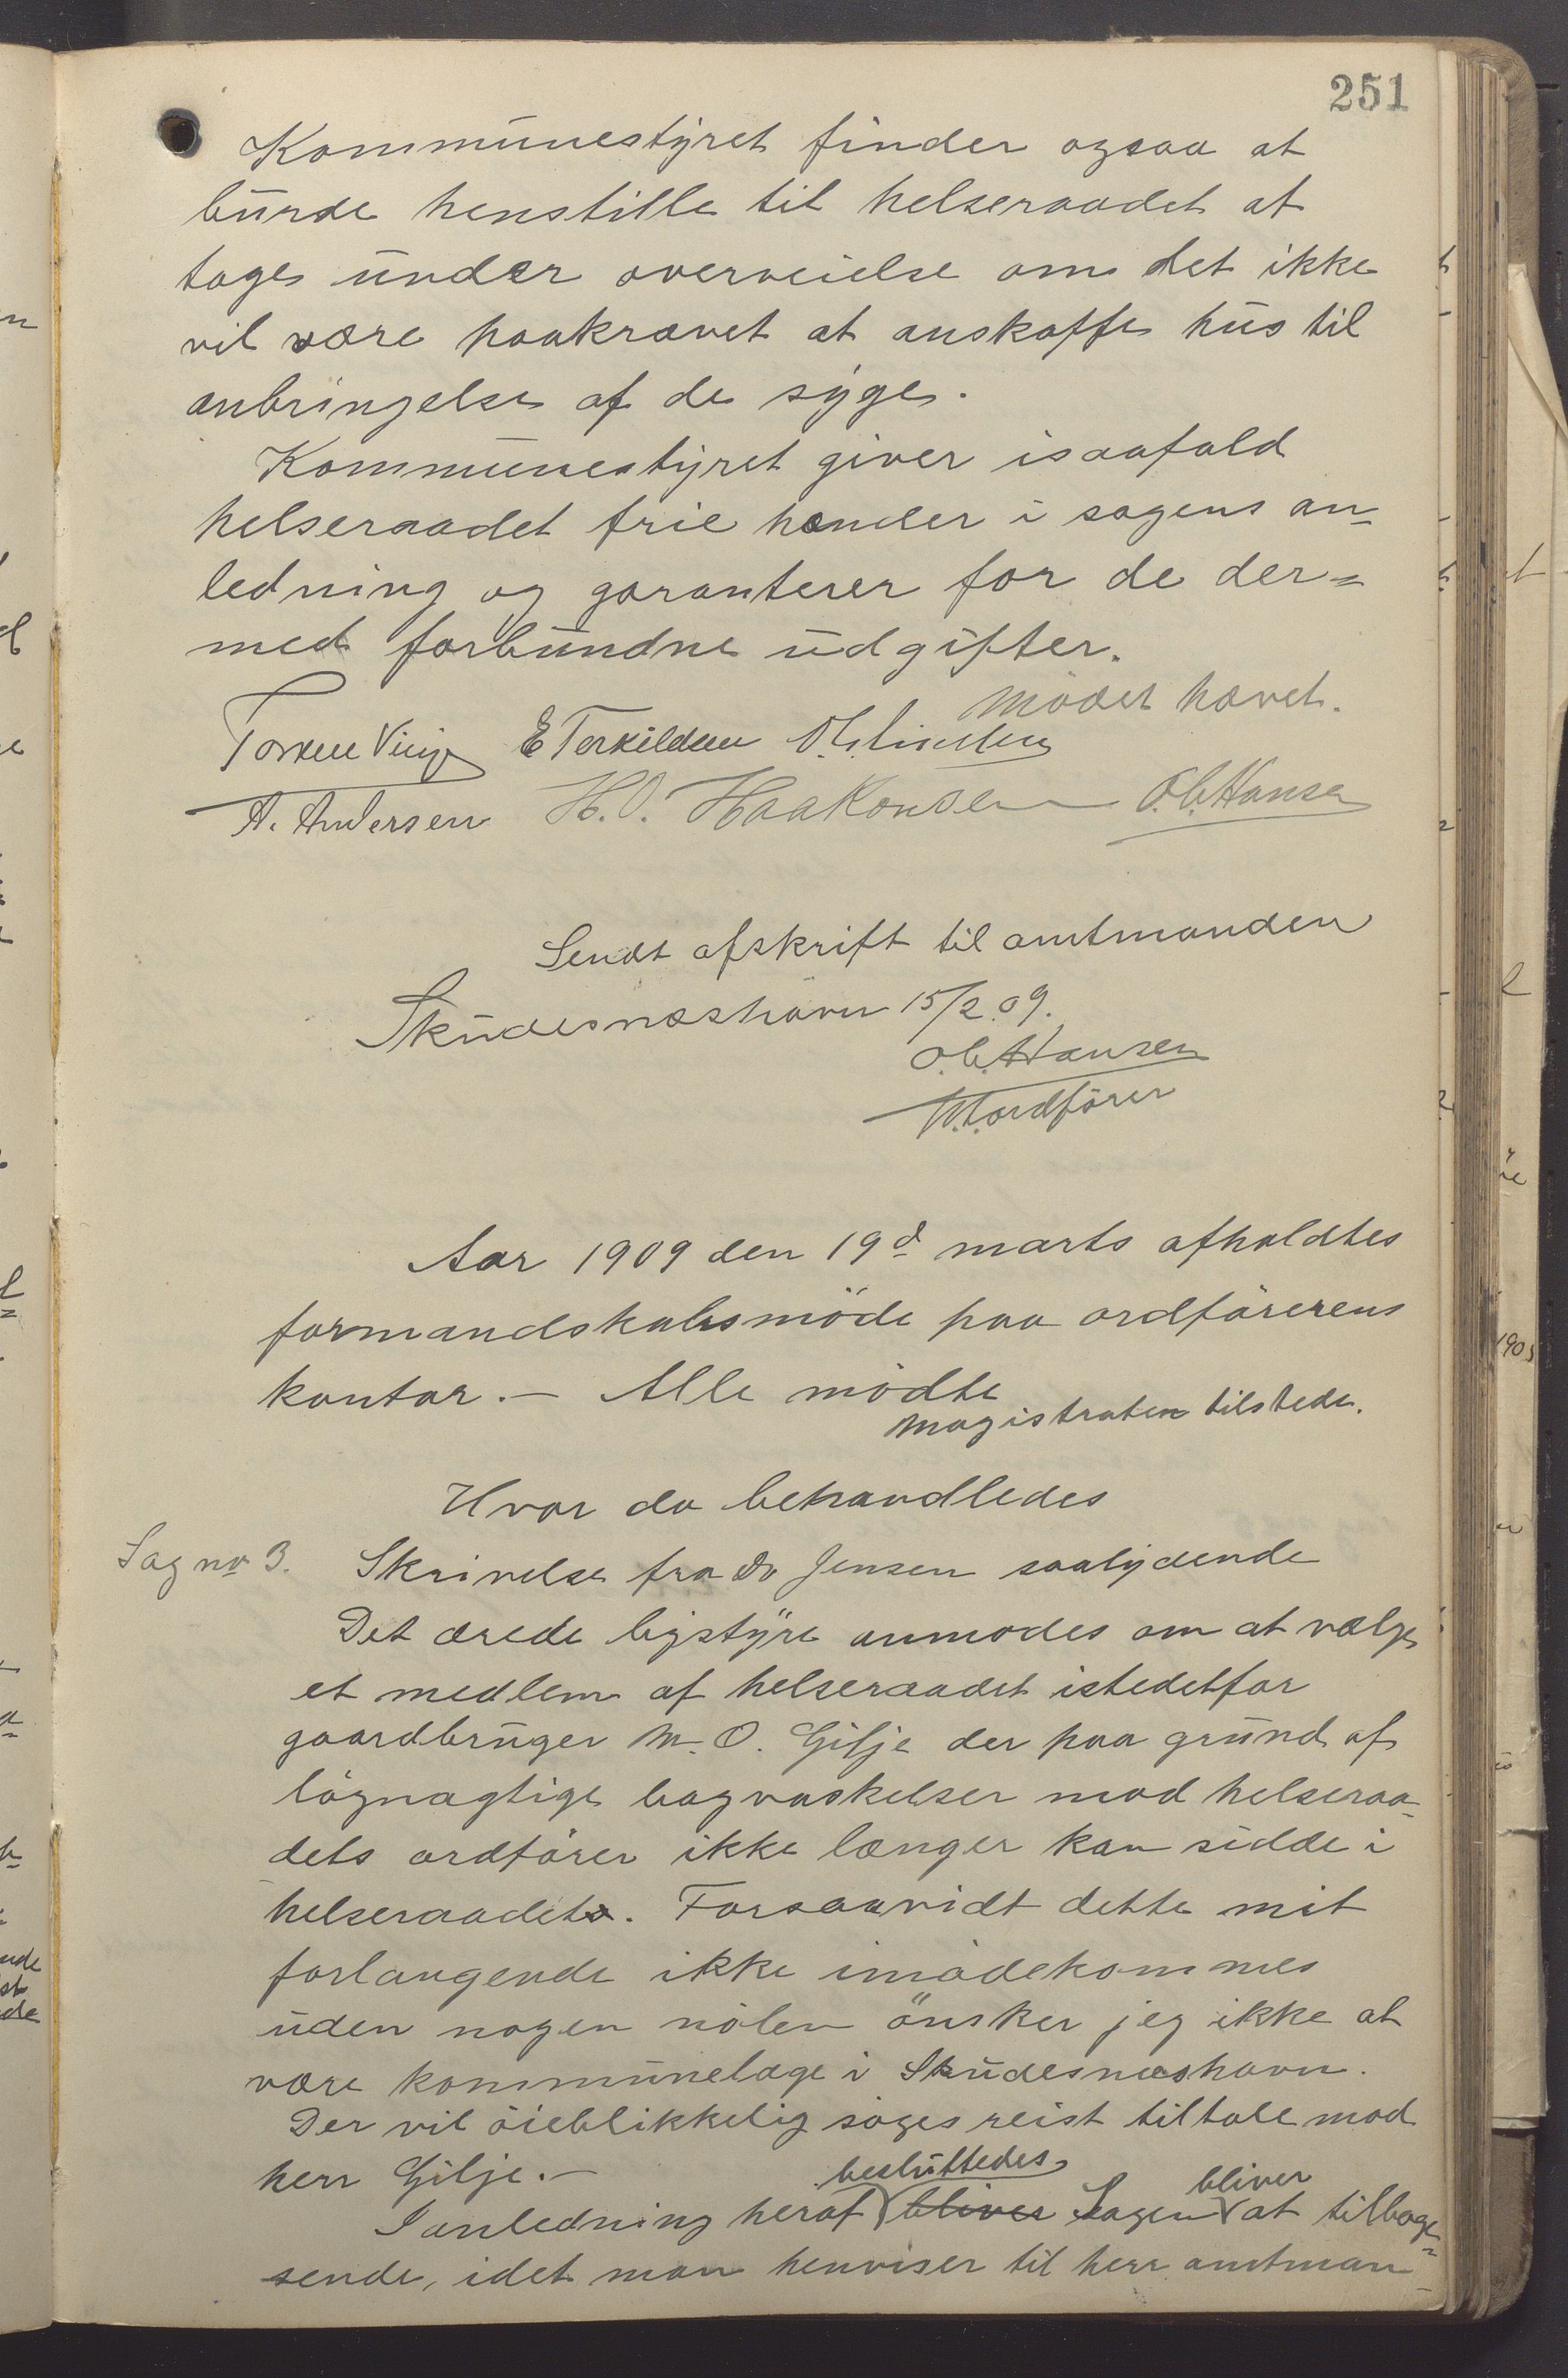 251
Kommunestyret finder ogsaa at
burde henstille til helseraadet at
tage under overveielse om det ikke
vil være paakrævet at anskaffe hus til
anbringelse af de syge.
Kommunestyret giver isaafald
helseraadet frie hænder i sagens an-
ledning og garanterer for de der=
med forbundne udgifter.
Mödet hævet.
E Terkildsen
A. Andersen H. O. Haakonsen O. C. Hansen
Sendt afskrift til amtmanden
Skudesnæshavn 15/2 09.
O. C. Hansen
V. ordförer
Aar 1909 den 19d marts afholdtes
formandskabsmöde paa ordförerens
kontor. — Alle mödte
Magistraten tilstede.
Hvor da behandledes
Sag no 3. Skrivelse fra Dr Jensen saalydende
Det ærede bystyre anmodes om at vælge
et medlem af helseraadet istedetfor
gaardbruger M. O. Gilje der paa grund af
lögnagtige bagvaskelser mod helseraa-
dets ordförer ikke længer kan sidde i
helseraadet. Forsaavidt dette mit
forlangende ikke imödekommes
uden nogen nölen önsker jeg ikke at
være kommunelæge i Skudesnæshavn.
Der vil öieblikkelig söges reist tiltale mod
herr Gilje. —
besluttedes bliver
I anledning heraf bliver Sagen at tilbage=
sende, idet man henviser til herr amtman-